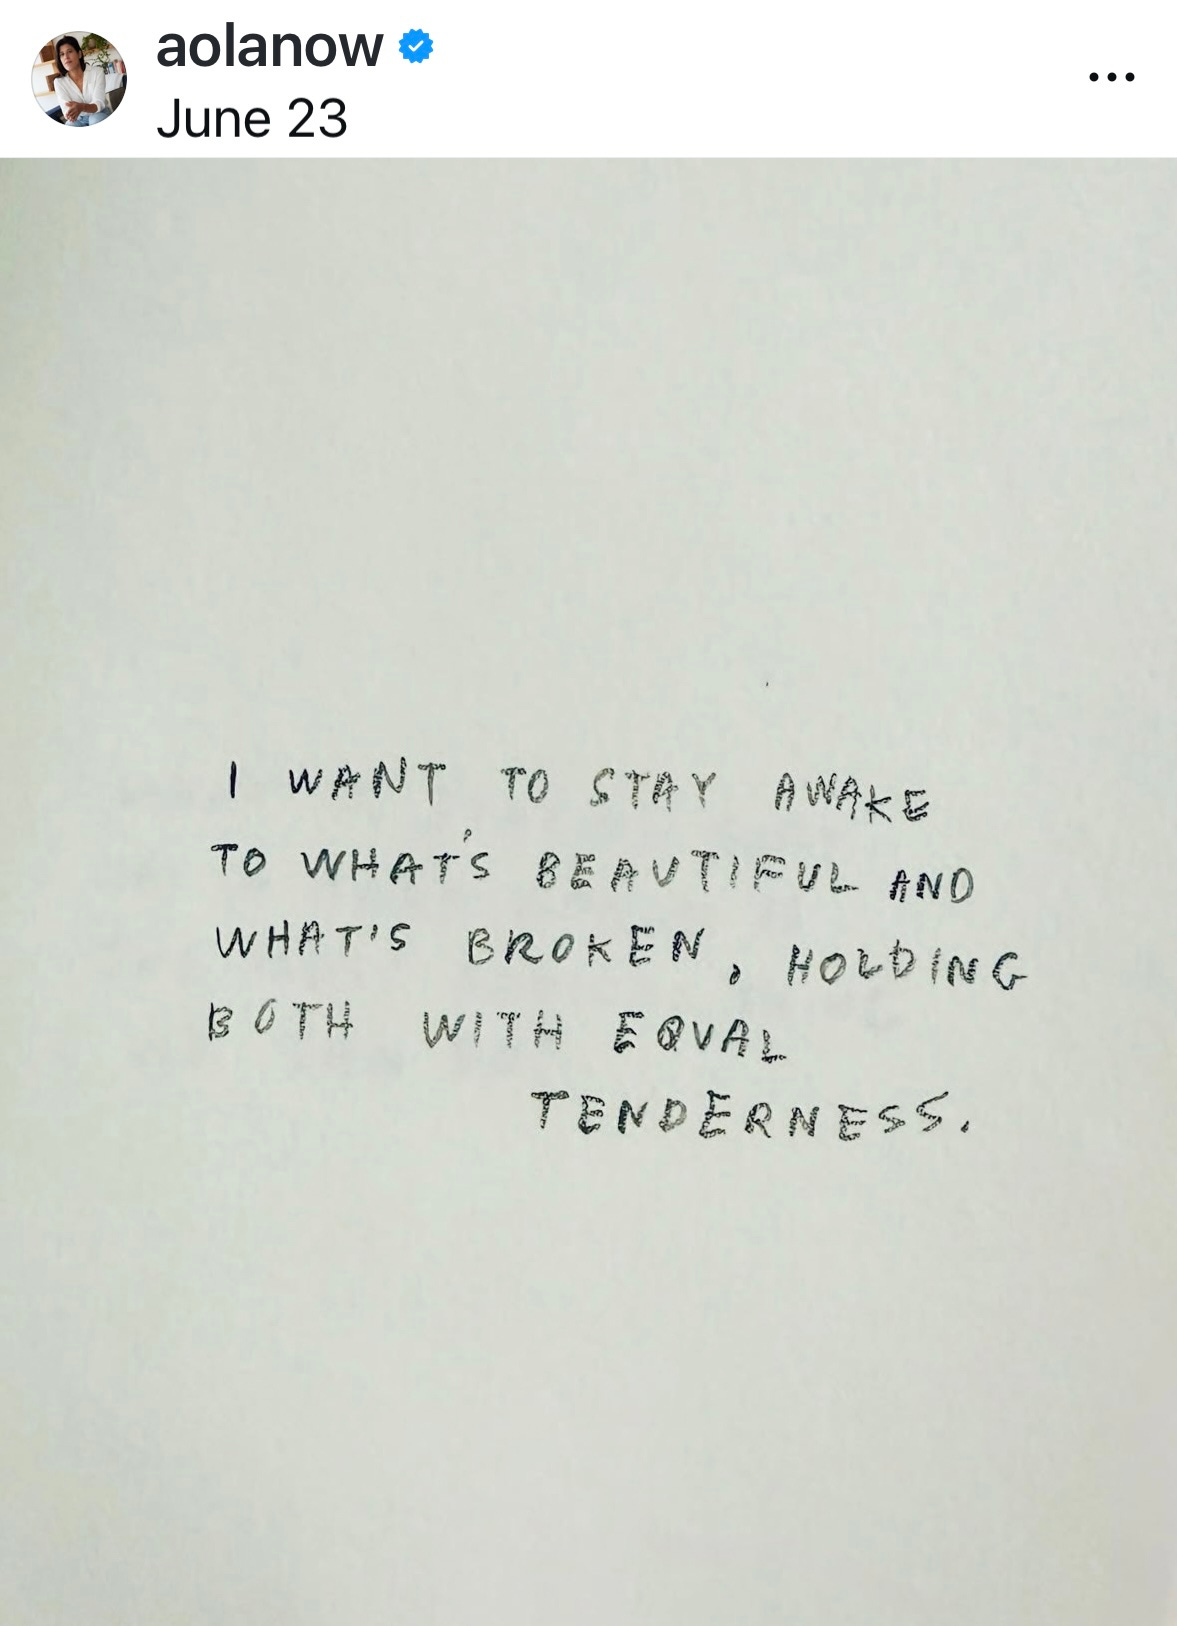 aolanow
June 23
I WANT TO STAY AWAKE
TO WHAT'S BEAUTIFUL AND
WHAT'S BROKEN, HOLDING
BOTH WITH EQUAL
TENDERNESS.